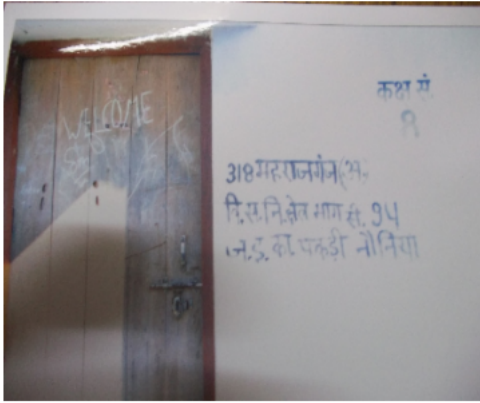 WELCOME
कक्ष सं.
१
318 महराजगंज (अ.
वि.स.नि.क्षेत्र भाग सं. 94
जू.ह.का. पकड़ी नौनिया